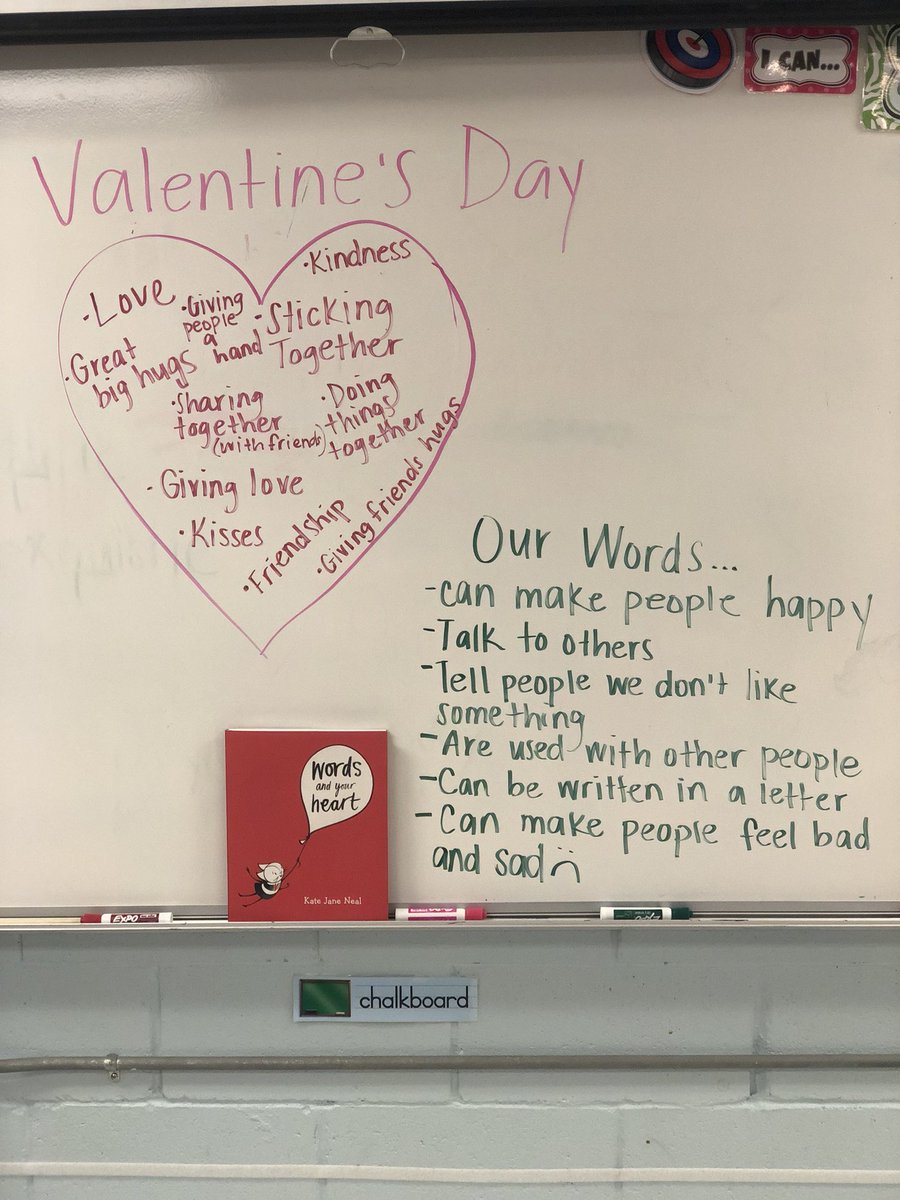 I CAN...
Valentine's Day
·Kindness
-Love
·Giving
people
a
hand
-Sticking
Together
·Great
big hugs
·Sharing
together
(with friends)
·Doing
things
together
-Giving love
·Kisses
·Friendship
·Giving friends hugs
Our Words...
-can make people happy
-Talk to others
-Tell people we don't like
something
-Are used with other people
-Can be written in a letter
-Can make people feel bad
and sad
words
and your
heart
Kate Jane Neal
EXPO
chalkboard